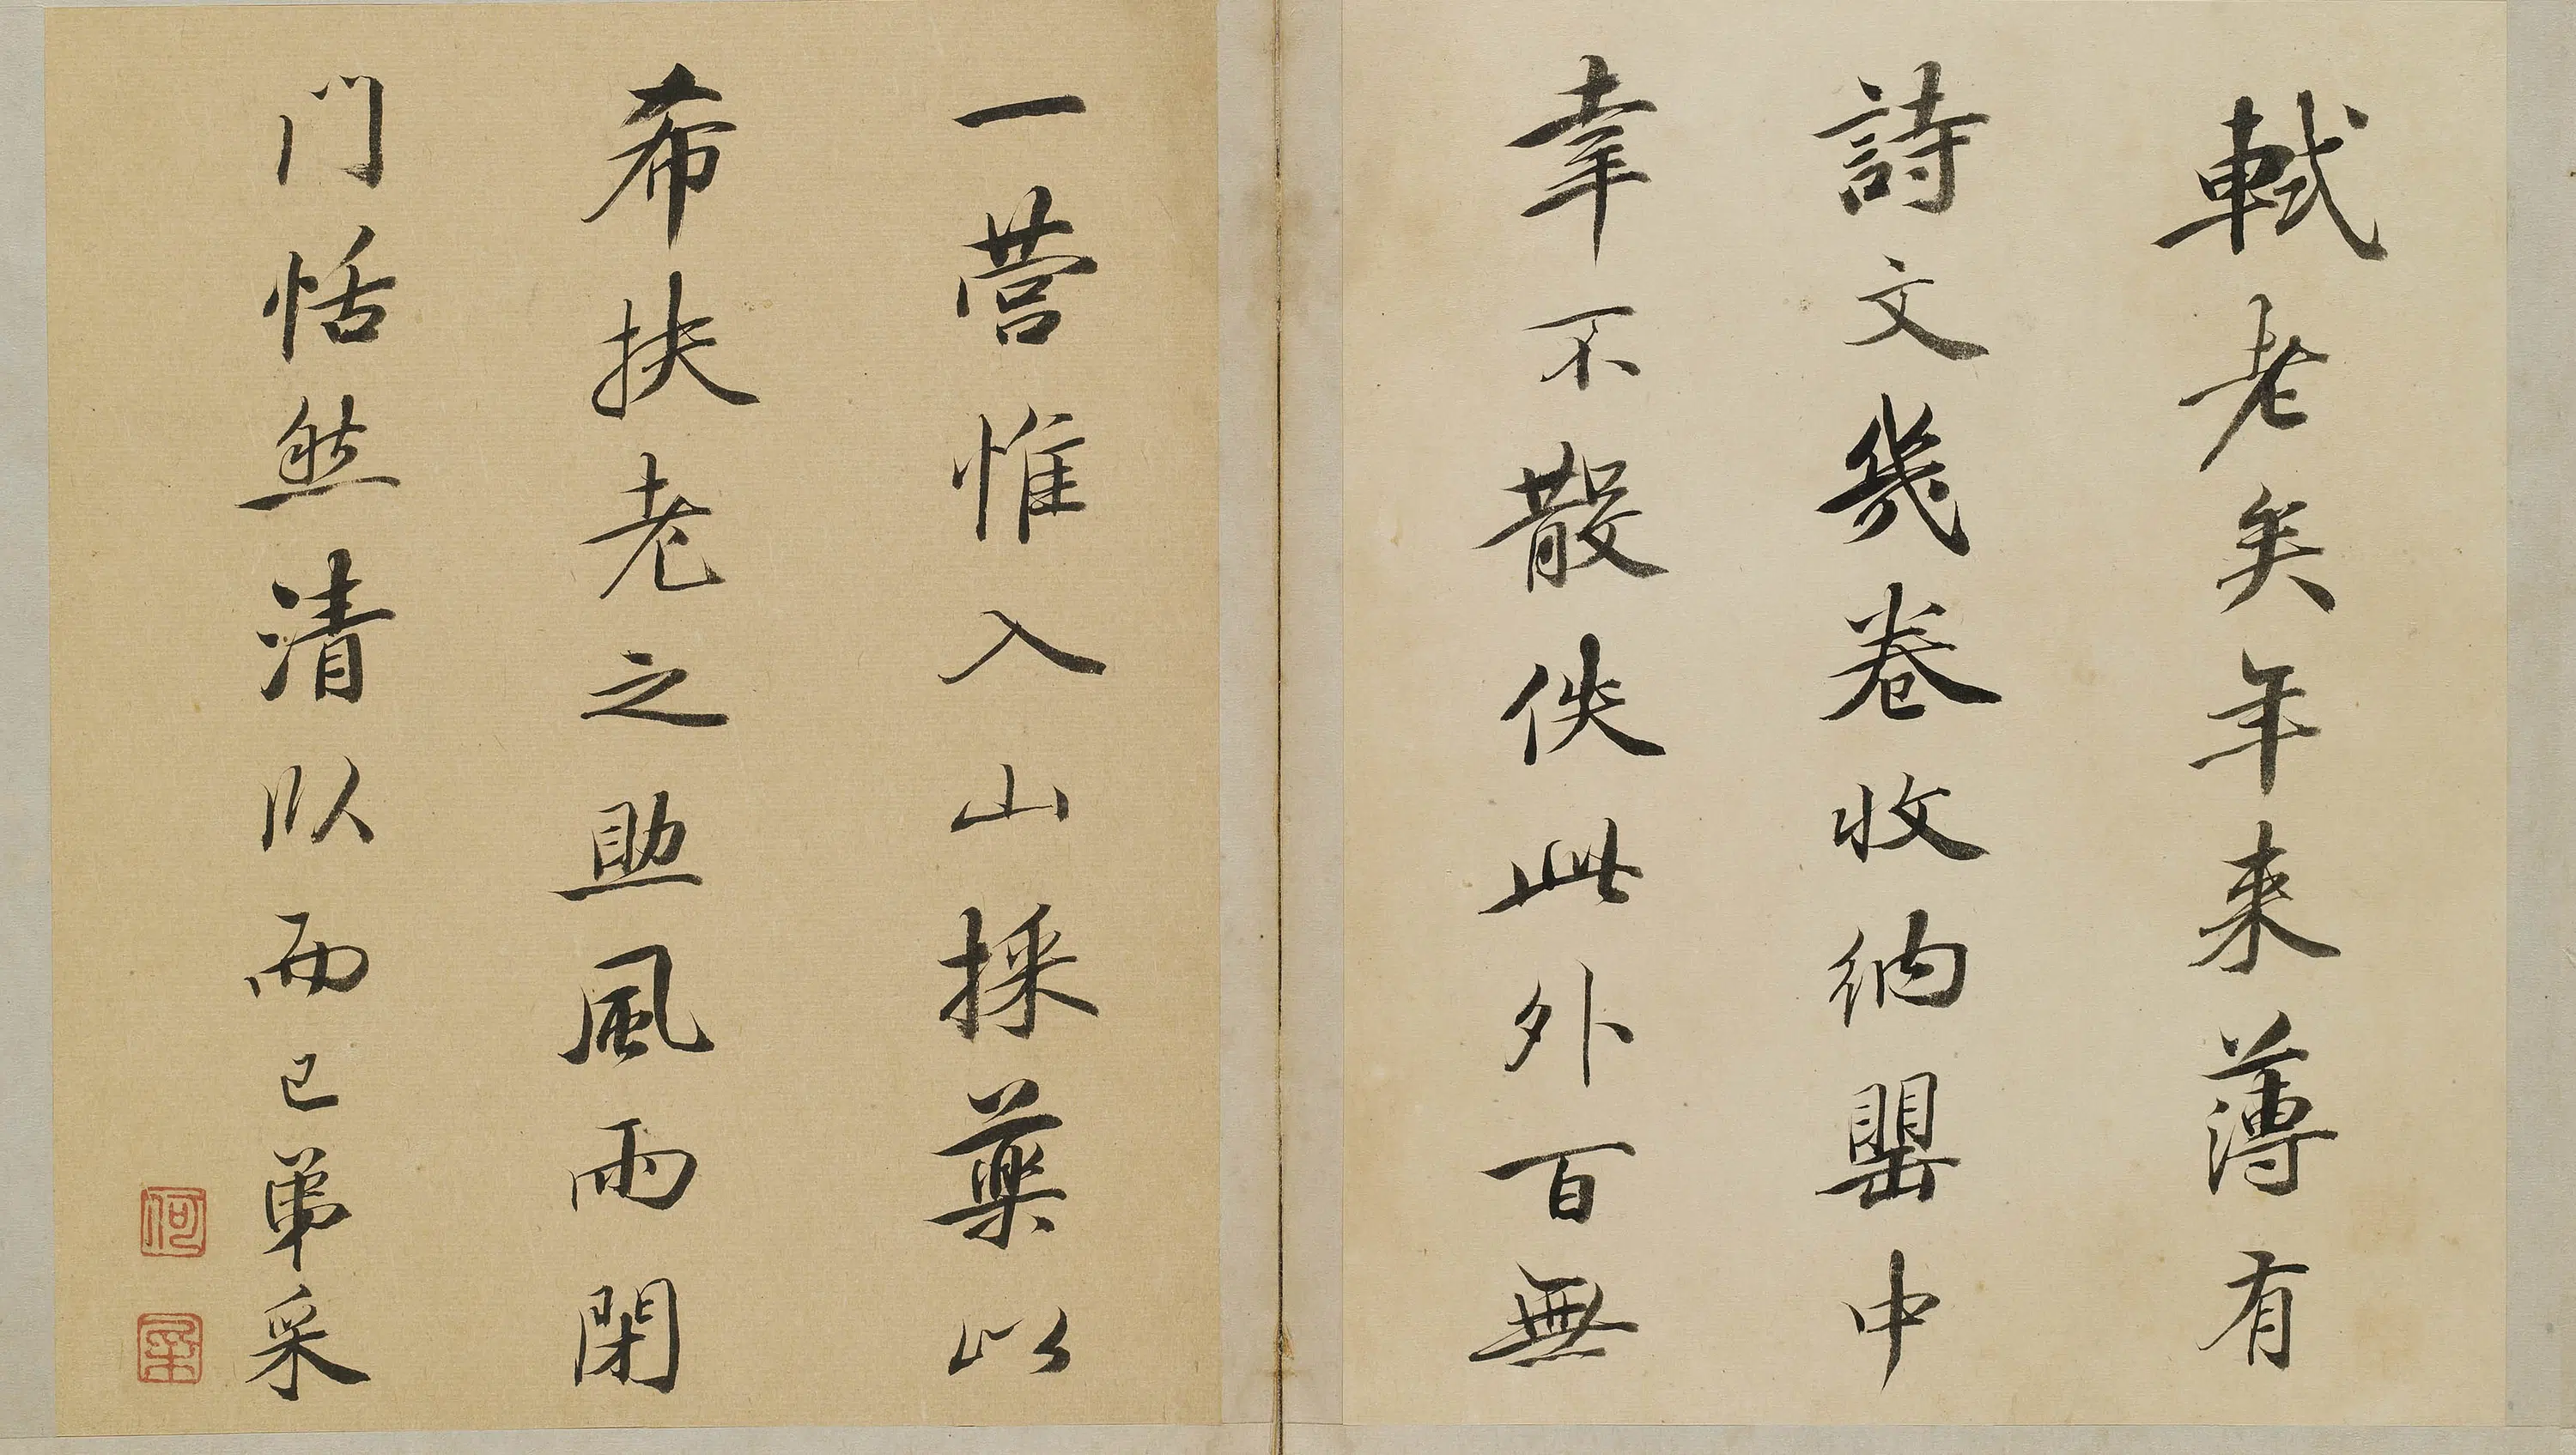 軾老矣年来薄有
詩文幾卷收納罌中
幸不散佚此外百無
一營惟入山採藥以
希扶老之助風雨閉
门恬然清臥而已弟采
何
采